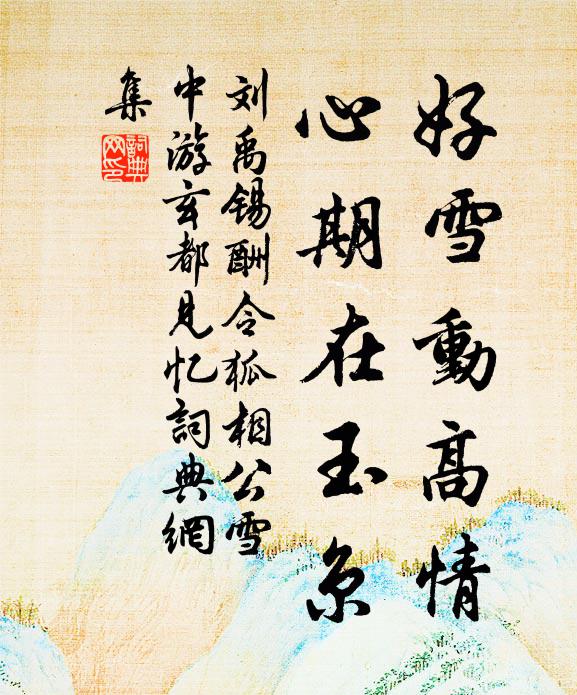 好雪動高情
心期在玉京
刘禹锡酬令狐相公雪
中游玄都見忆詞典網
集
詞典網印